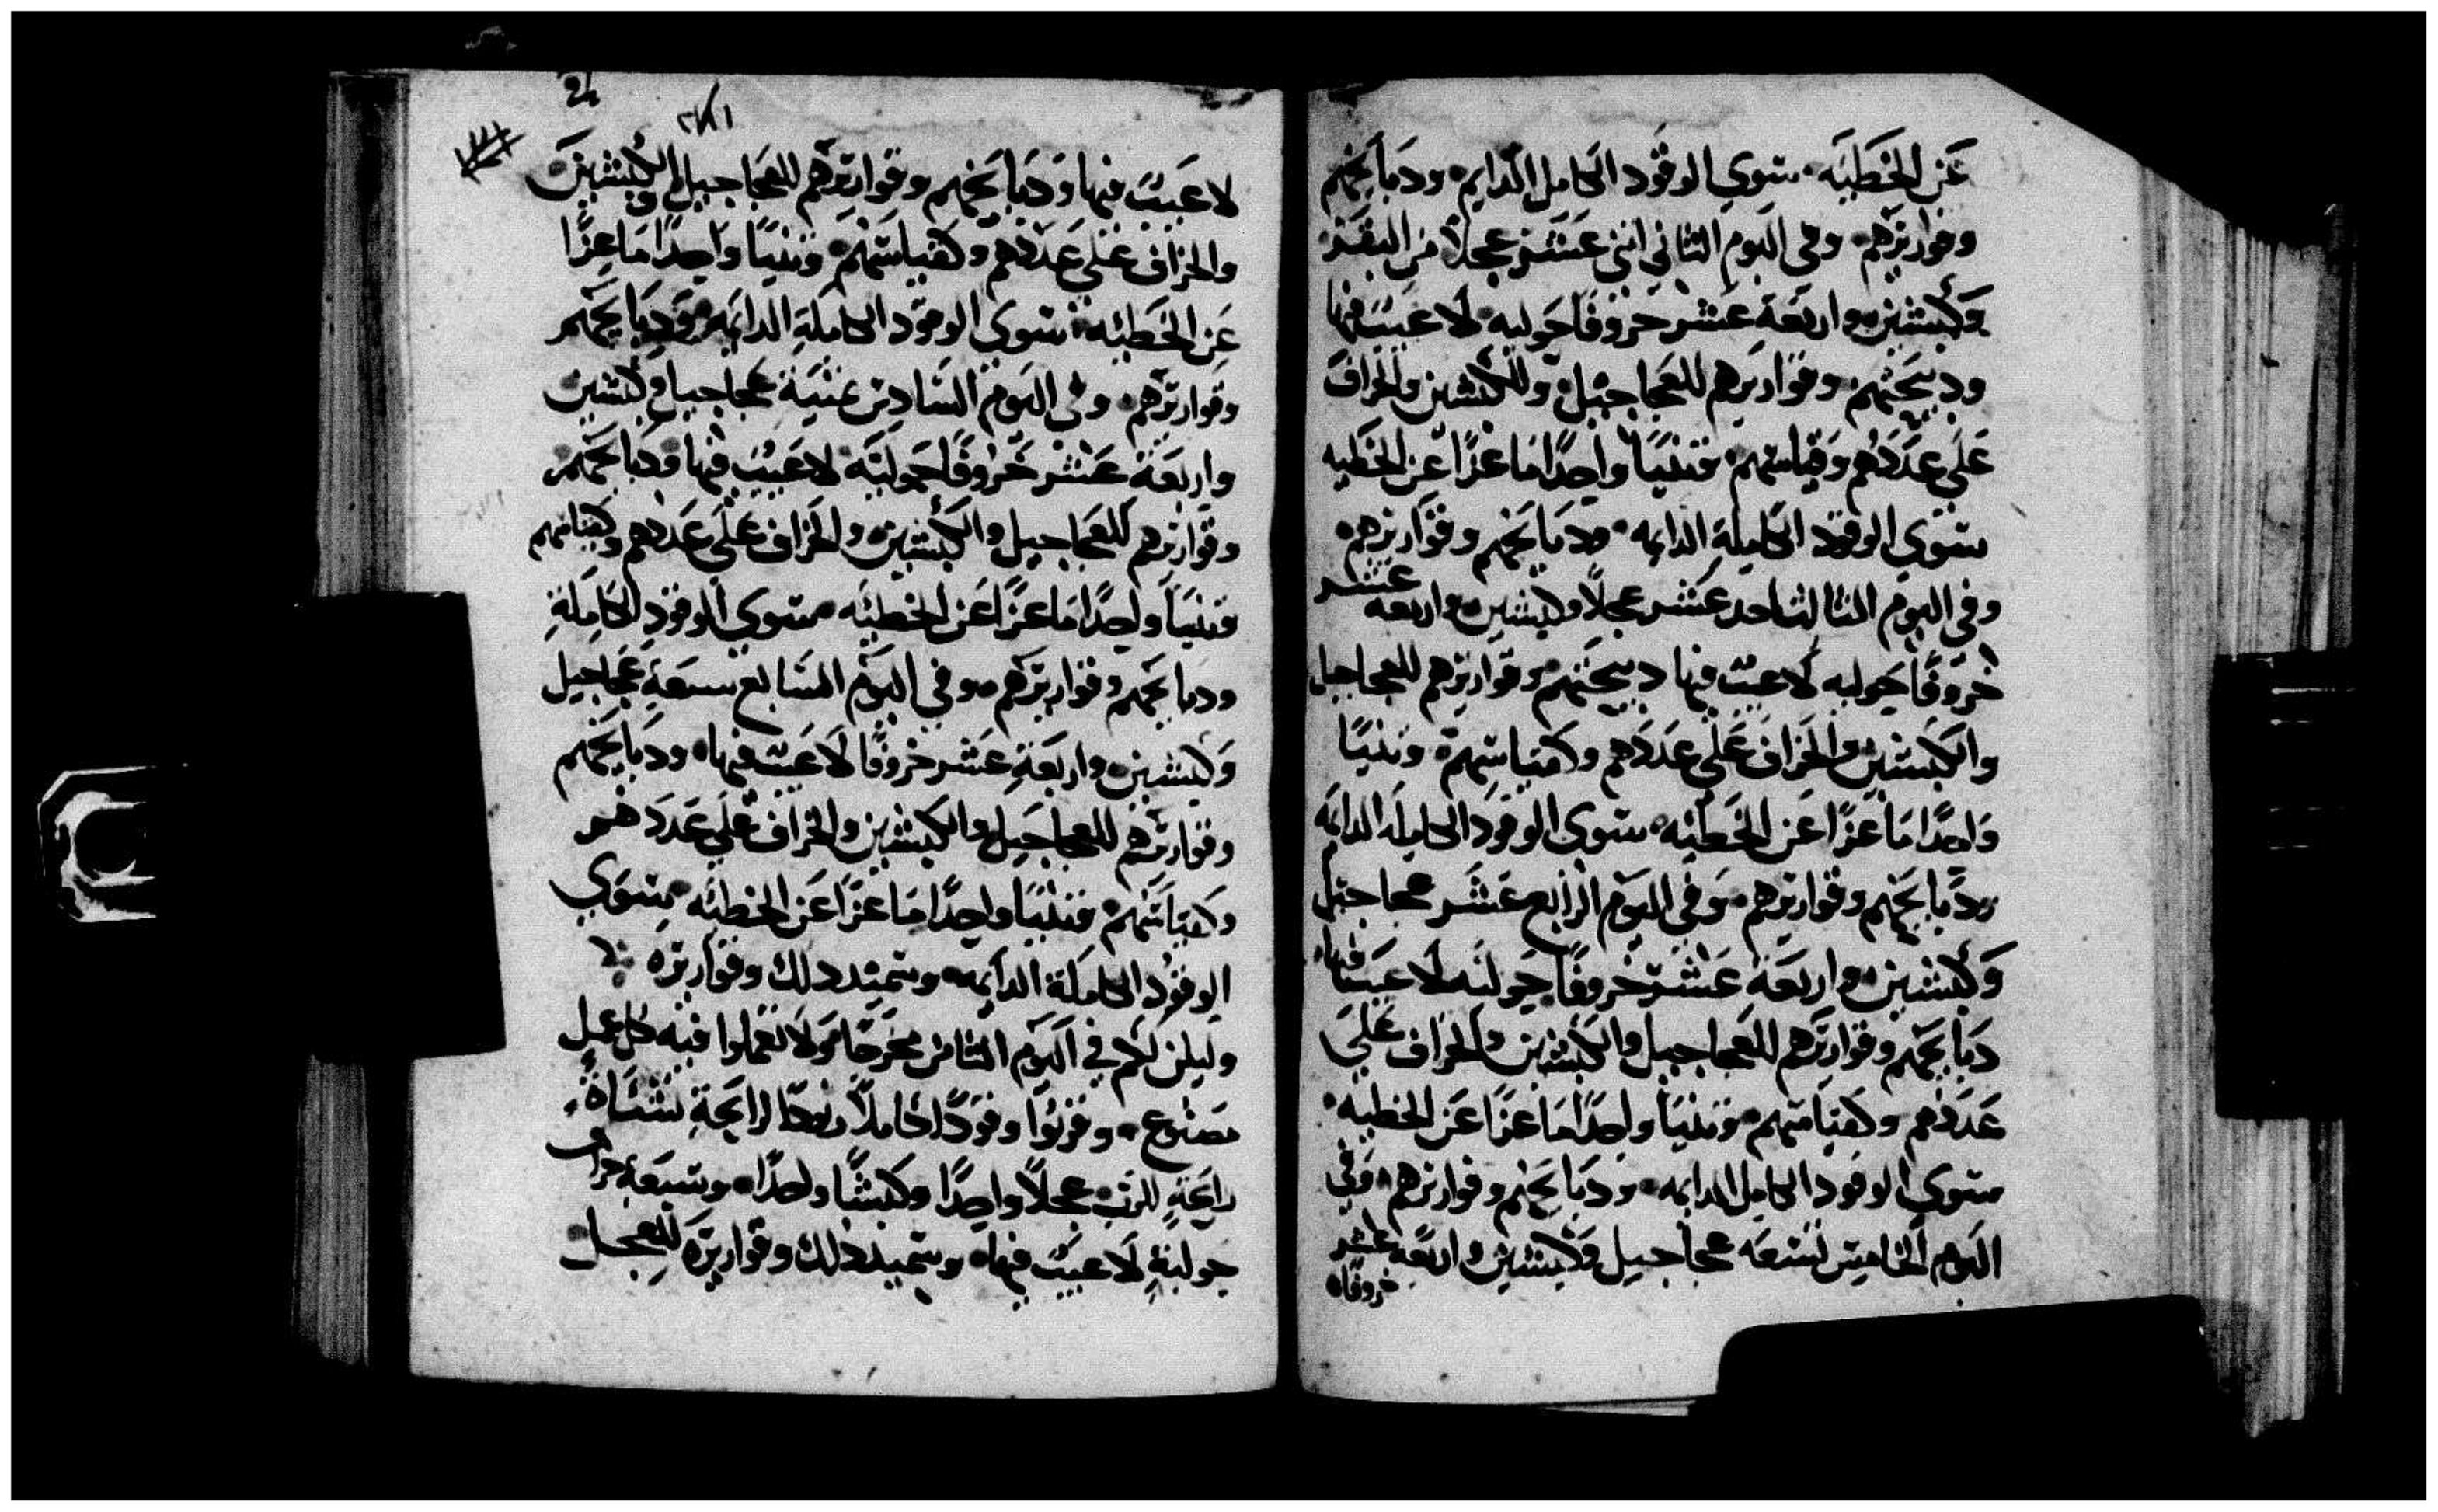 عَن الخَطيَه سوي الوقود الكامل الدايم ودبايحهم
وقواريرهم وفي اليوم الثاني اثني عشر عجلاً من البقر
وكبشين واربَعة عشر خروفًا حَوليه لا عَيبَ فيها
ودبيحتهم وقواريرهم للعجاجيل وللكبشين والخراف
عَلي عدَدهم وقياسهم وتنيًا واحِدًا مَاعزًا عَن الخطيه
سوي الوقود الكاملة الدايمه ودبايحهم وقواريرهم
وفي اليوم الثالث احد عشر عجلاً وكبشين واربعه عشر
خروفًا حَوليه لا عيب فيها دبيحتهم وقواريرهم للعجاجيل
والكبشين والخراف عَلي عدَدهم وكقياسهم وتنيًا
واحدًا مَاعزًا عَن الخَطيئه سوي الوقود الكاملَه الدايمَه
ودبايحهم وقواريرهم وفي اليوم الرابع عَشر عجاجيل
وَكبشين واربعَة عَشر خروفًا حَوليَه لا عيب فيها
دبايحهم وقواريرهم للعجاجيل والكبشين والخراف عَلي
عَدَدهم وكقياسهم وتنيًا واحدًا مَاعزًا عَن الخطيه
سوي الوقود الكامل الدايمه ودبايحهم وقواريرهم وفي
اليوم الخامس تسعَه عجاجيل وكبشين واربعَه عشر
خروفًا
24
لا عَيبَ فيها ودَبايحهم وقواريرهم للعجاجيل والكبشين
والخراف عَلي عَددهم وكقياسهم وتنيًا واحِدًا مَاعِزًا
عَن الخَطيئه سوي الوقود الكاملَةِ الدايمه ودبايحهم
وقواريرهم وفي اليوم السَادس ثمنيَة عجاجيل وكبشين
واربعَة عَشر خَروفًا حَوليَه لا عَيبَ فيها ودبايحهم
وقواريرهم للعجاجيل والكبشين والخراف عَلَي عَددهم وكقياسهم
وتنيَاً واحِدًا مَاعزًا عَن الخطيئَه سوي الوقود الكامِلةِ
ودبايحهم وقواريرهم وفي اليوم السَابع سبعَةِ عجاجيل
وَكبشين واربعَةِ عَشر خروفًا لا عَيب فيها ودبايحهم
وقواريرهم للعجاجيل والكبشين والخراف عَلي عَددَهم
وكقيَاسَهم وتنيًا واحِدًا مَاعزًا عَن الخطيئَه سوي
الوقود الكاملَة الدايمه وسَميد دلك وقواريره
وليكن لكم في اليوم الثامن مخرجًا ولا تعملوا فيه كل عمل
مصنوع وقربُوا وقودًا كاملاً ربحا لرايحَةِ
رايحَةٍ للرب عجلاً واحِدًا وكبشًا واحدًا وسَبعَةِ خراف
حوليَةٍ لا عَيبَ فيها وسَميد دلك وقواريره للعجل